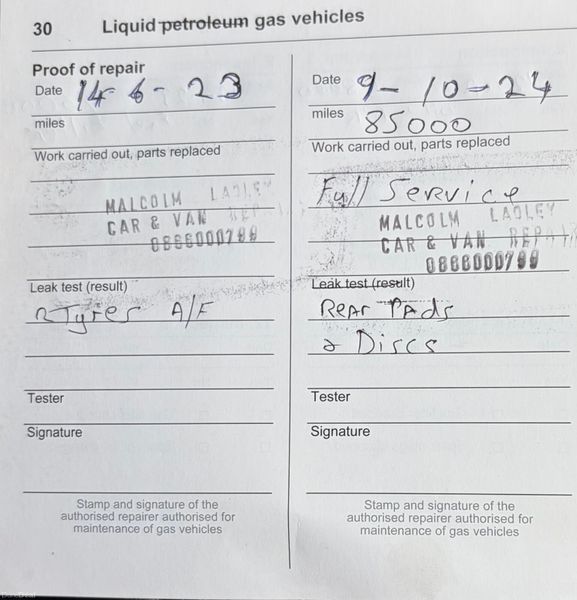 30 Liquid petroleum gas vehicles
Proof of repair
Date 14-6-23
miles
Work carried out, parts replaced
MALCOLM LADLEY
CAR & VAN REP
Leak test (result)
2 Tyres A/F
Tester
Signature
Stamp and signature of the
authorised repairer authorised for
maintenance of gas vehicles
Date 9-10-24
miles 85000
Work carried out, parts replaced
Full Service
MALCOLM LADLEY
CAR & VAN REPAI
Leak test (result)
Rear PAds
& Discs
Tester
Signature
Stamp and signature of the
authorised repairer authorised for
maintenance of gas vehicles